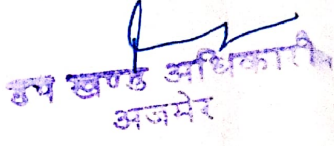 उप खण्ड अधिकारी
अजमेर